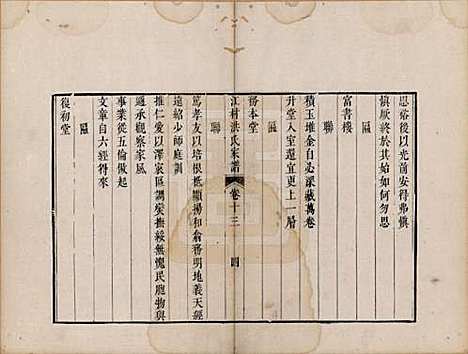 思裕後以光前安得弗慎
慎厥終於其始如何勿思
匾
富書樓
聯
積玉堆金自必深藏萬卷
升堂入室還宜更上一層
匾
務本堂
江村洪氏家譜 卷十三 四
聯
篤孝友以培根柢顯揚和俞務明地義天經
遠紹少師庭訓
推仁愛以澤寰區調燮撫綏無愧民胞物與
通承觀察家風
事業從五倫做起
文章自六經得來
匾
復初堂